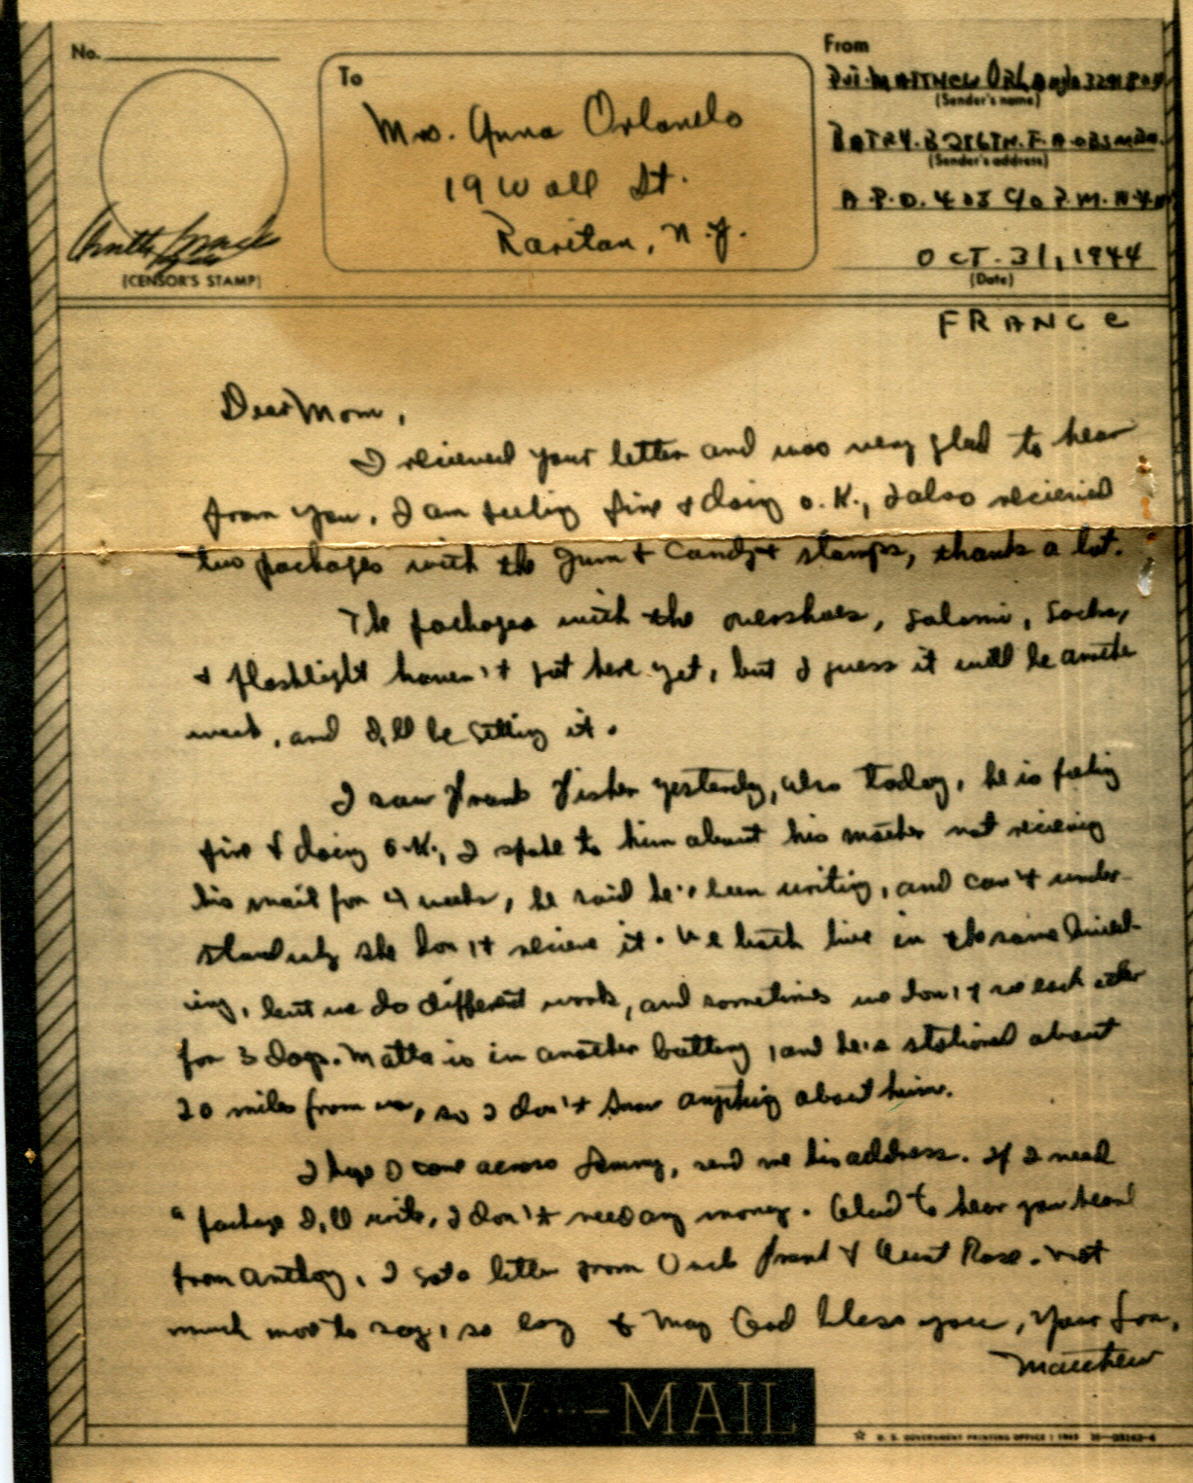 No.
To
Mrs. Anna Orlando
19 Wall St.
Raritan, N.J.
From
Pvt. MATTHEW ORLANDO
(Sender's name)
BATRY. B F.A. OBS.
(Sender's address)
A.P.O. 403 C/o P.M. N.Y.
OCT. 31, 1944
(Date)
(CENSOR'S STAMP)
FRANCE
Dear Mom,
I recieved your letter and was very glad to hear
from you. I am feeling fine & doing O.K., I also recieved
two packages with the gum & candy & stamps, thanks a lot.
The packages with the overshoes, salami, socks,
& flashlight haven't got here yet, but I guess it will be another
week, and I,ll be getting it.
I saw Frank Fisher yesterday, also today, he is feeling
fine & doing O.K., I spoke to him about his mother not recieving
his mail for 4 weeks, he said he's been writing, and can't under-
stand why she don't recieve it. We both live in the same build-
ing, but we do different work, and sometimes we don't see each other
for 3 days. Matta is in another battery, and he's stationed about
20 miles from us, so I don't know anything about him.
I hope I come across Sammy, send me his address. If I need
a package I,ll write, I don't need any money. Glad to hear you heard
from Anthony. I got a letter from Uncle Frank & Aunt Rose. Not
much more to say, so long & may God bless you, Your Son,
Matthew
V···—MAIL
☆ U. S. GOVERNMENT PRINTING OFFICE : 1943